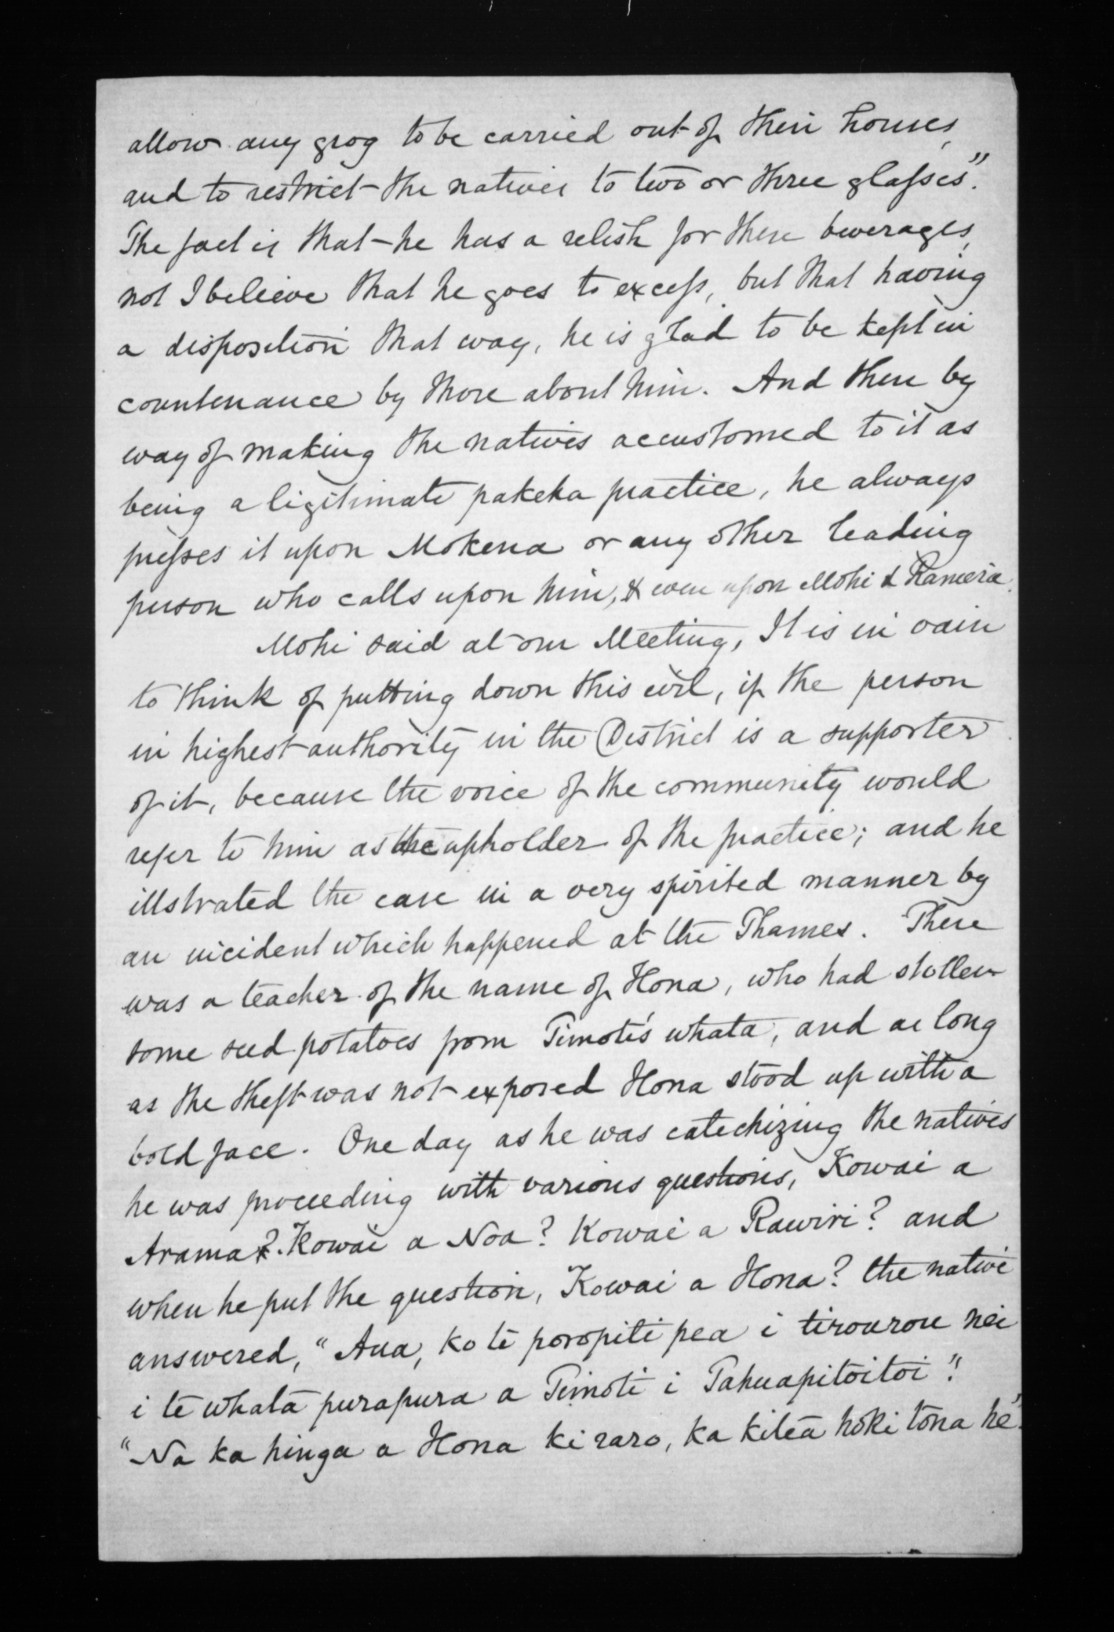 allow any grog to be carried out of their houses,
and to restrict the natives to two or three glasses".
The fact is that he has a relish for these beverages,
not I believe that he goes to excess, but that having
a disposition that way, he is glad to be kept in
countenance by those about him. And then by
way of making the natives accustomed to it as
being a legitimate pakeka practice, he always
presses it upon Mokena or any other leading
person who calls upon him, & even upon Mohi & Raniera.
Mohi said at our Meeting, It is in vain
to think of putting down this evil, if the person
in highest authority in the District is a supporter
of it, because the voice of the community would
refer to him as the upholder of the practice; and he
illstrated the case in a very spirited manner by
an incident which happened at the Thames. There
was a teacher of the name of Hona, who had stollen
some seed potatoes from Timoti's whata, and as long
as the theft was not exposed Hona stood up with a
bold face. One day as he was catechizing the natives
he was proceeding with various questions, Kowai a
Arama? Kowai a Noa? Kowai a Rawiri? and
when he put the question, Kowai a Hona? the native
answered, "Aua, ko te poropiti pea i tirourou nei
i te whata purapura a Timoti i Tahuapitoitoi".
"Na ka hinga a Hona ki raro, ka kitea hoki tona he".